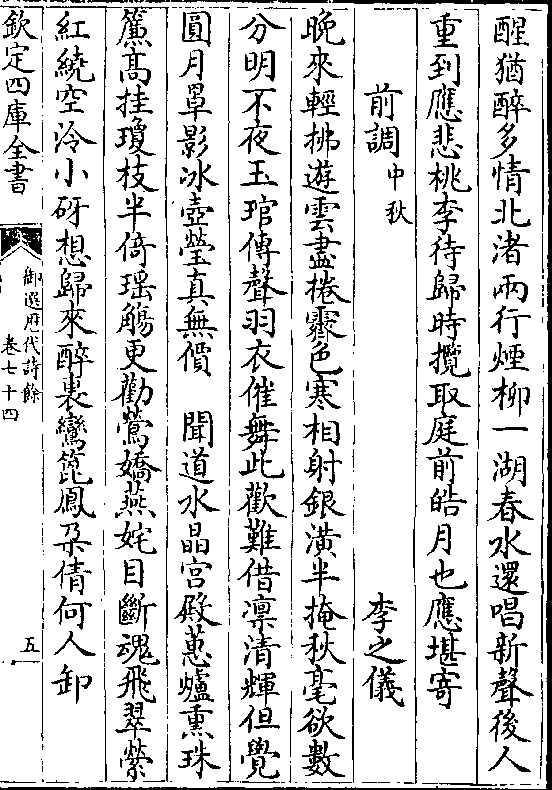 醒猶醉多情北渚兩行煙柳一湖春水還唱新聲後人
重到應悲桃李待歸時攬取庭前皓月也應堪寄
前調中秋 李之儀
晚來輕拂遊雲盡捲霽色寒相射銀潢半掩秋毫欲數
分明不夜玉琯傳聲羽衣催舞此歡難借凛清輝但覺
圓月罩影冰壺瑩真無價 聞道水晶宮殿蕙爐熏珠
簾高挂瓊枝半倚瑤觴更勸鶯嬌燕姹目斷魂飛翠縈
紅繞空泠小砑想歸來醉裏鸞篦鳳朵倩何人卸
欽定四庫全書
御選歷代詩餘
卷七十四
五